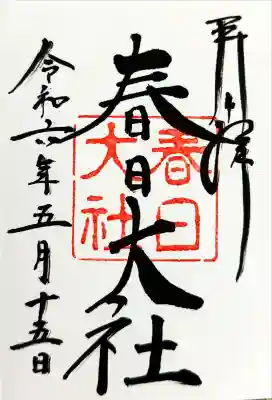 奉拝
春日大社
春日大社
令和六年五月十五日